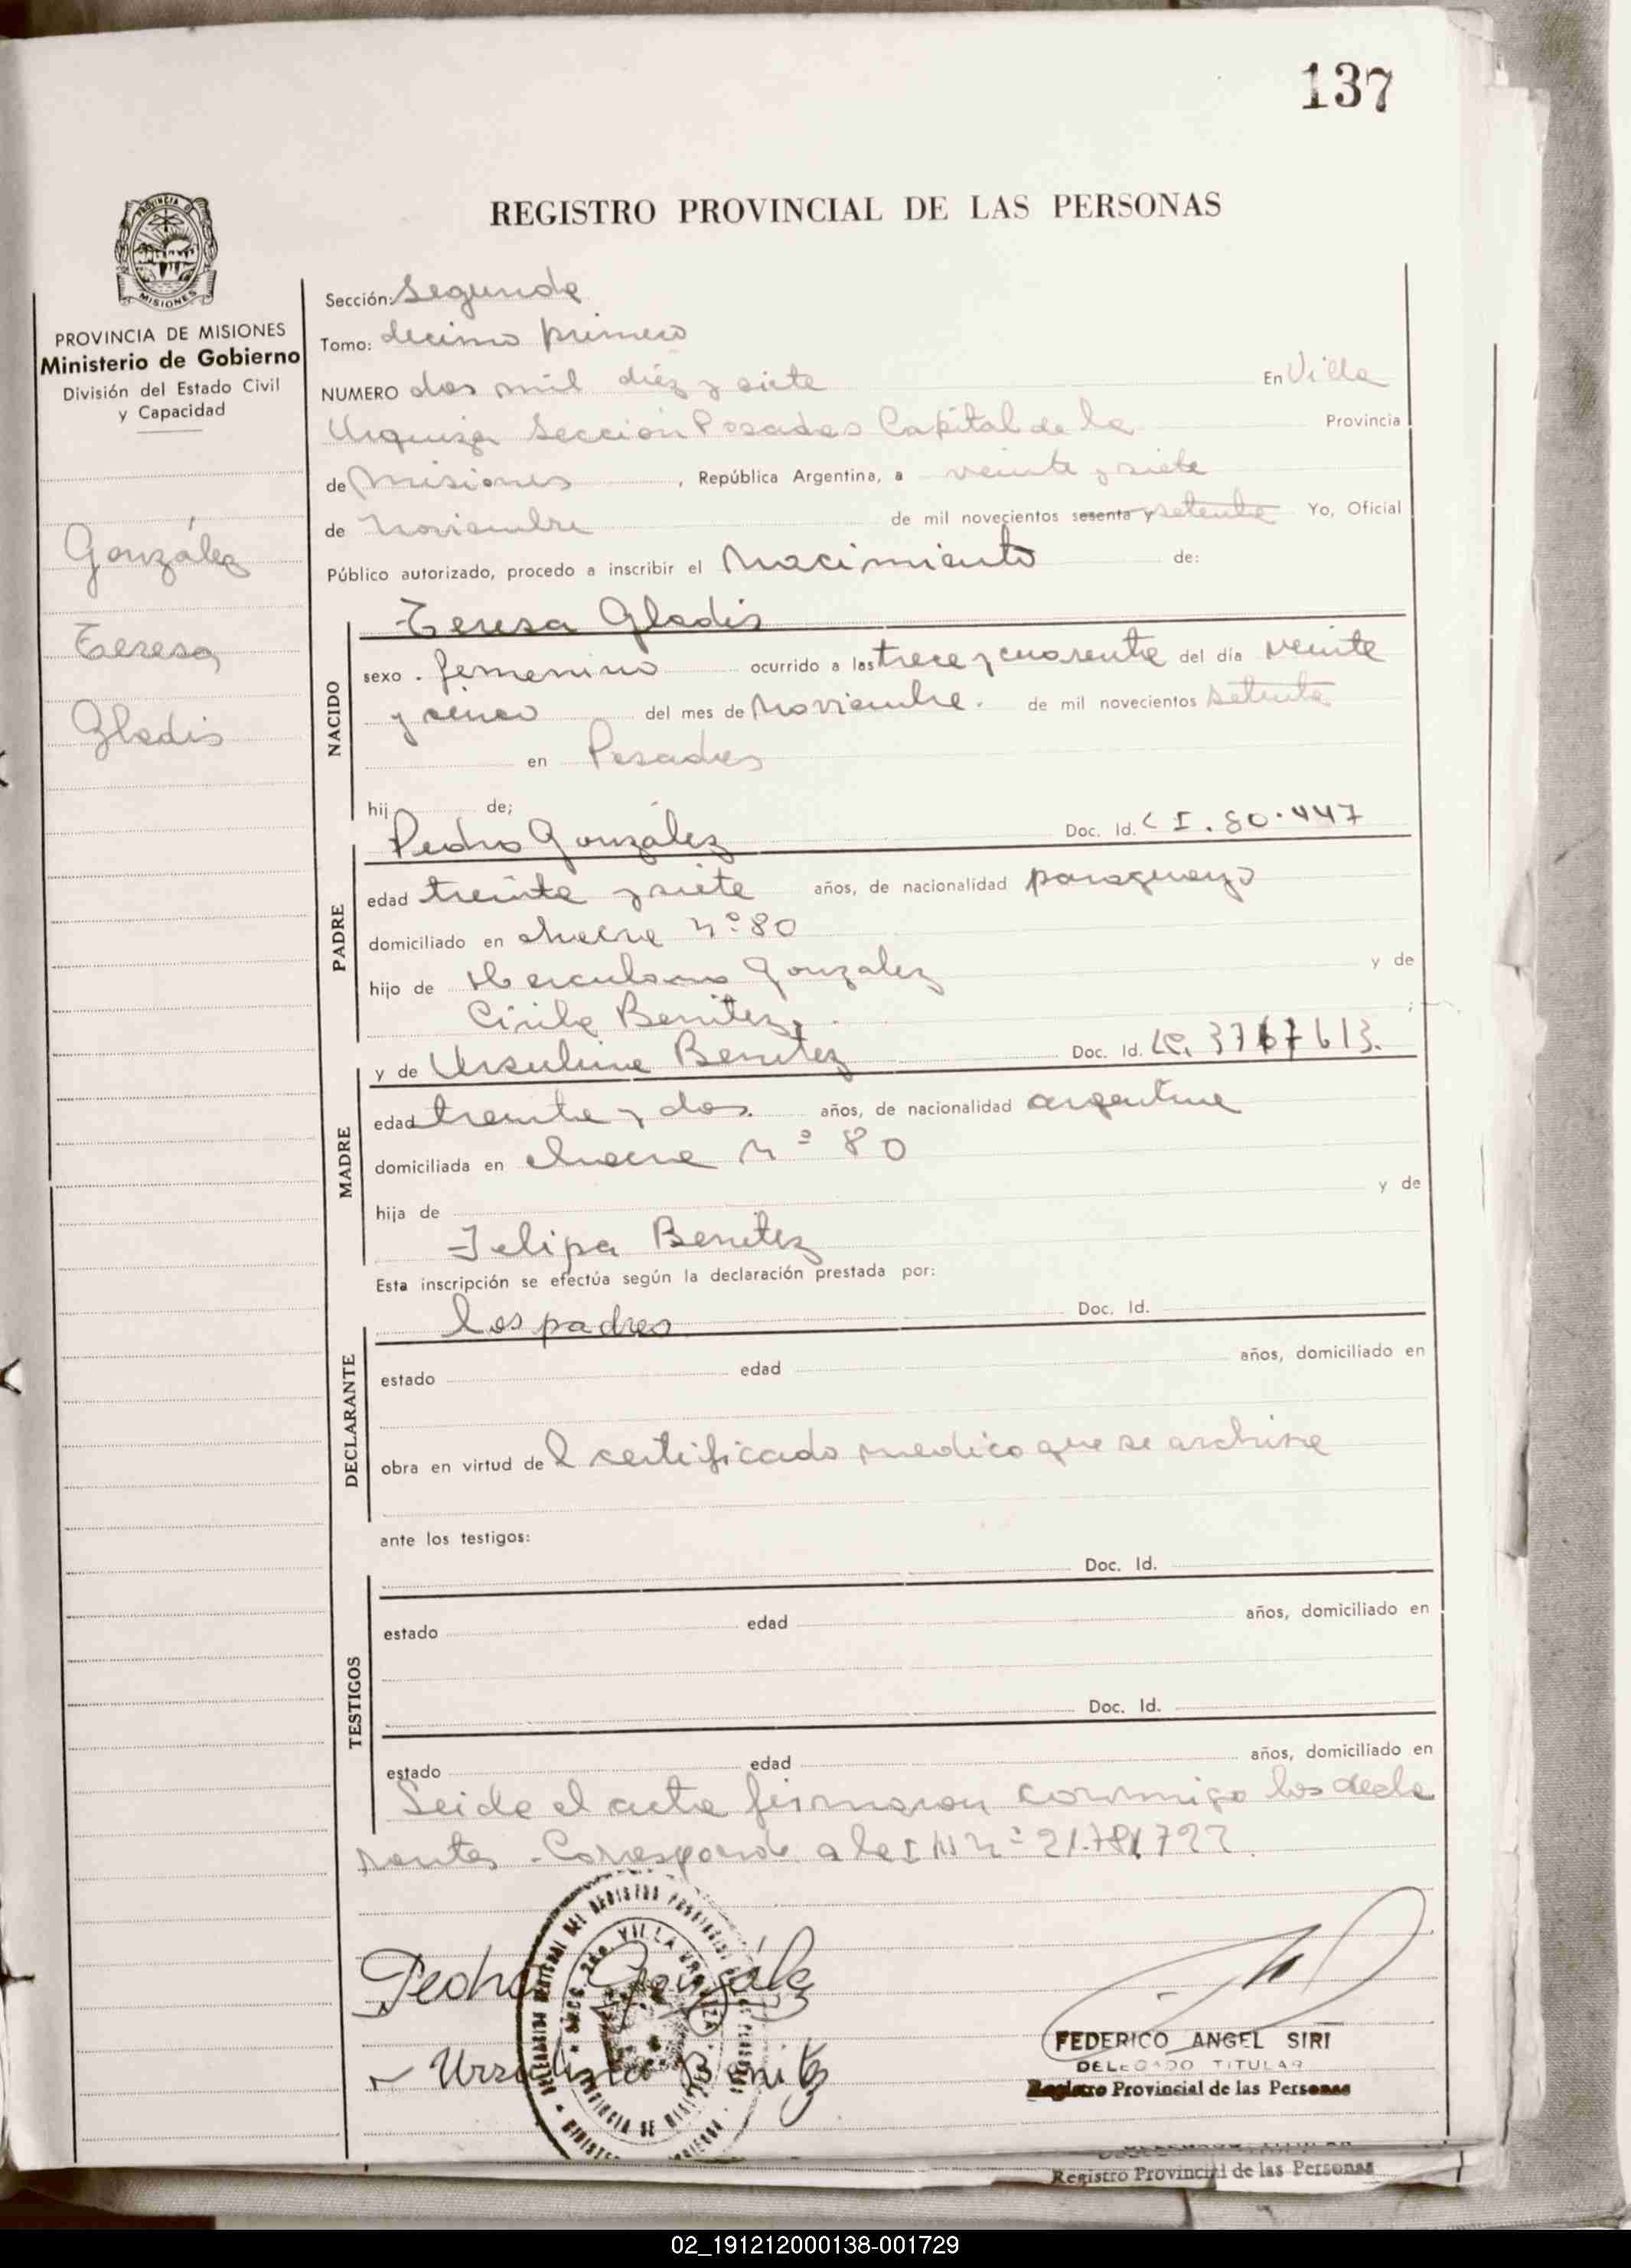 137
REGISTRO PROVINCIAL DE LAS PERSONAS
PROVINCIA DE MISIONES
Ministerio de Gobierno
División del Estado Civil
y Capacidad
González
Teresa
Gladis
Sección: Segunda
Tomo: decimo primero
NUMERO dos mil diéz y siete En Villa
Urquiza Sección Posadas Capital de la Provincia
de Misiones, República Argentina, a veinte y siete
de Noviembre de mil novecientos sesenta y setenta Yo, Oficial
Público autorizado, procedo a inscribir el Nacimiento de:
NACIDO
Teresa Gladis
sexo femenino ocurrido a las trece y cuarenta del día veinte
y cinco del mes de Noviembre. de mil novecientos setenta
en Posadas
hij de;
PADRE
Pedro González Doc. Id. C I. 80.447
edad treinta y siete años, de nacionalidad paraguayo
domiciliado en chacra nº 80
hijo de Herculano Gonzalez y de
Cirila Benitez;
MADRE
y de Ursulina Benitez Doc. Id. LC. 3767613.
edad treinta y dos. años, de nacionalidad argentina
domiciliada en chacra nº 80
hija de y de
Felipa Benitez
Esta inscripción se efectúa según la declaración prestada por:
DECLARANTE
los padres Doc. Id.
estado edad años, domiciliado en
obra en virtud del certificado medico que se archiva
ante los testigos:
TESTIGOS
Doc. Id.
estado edad años, domiciliado en
Doc. Id.
estado edad años, domiciliado en
Leida el acta firmaron conmigo los decla
rantes - Corresponde a la I M nº 21.781722.
Pedro González
Ursulina Benitez
FEDERICO ANGEL SIRI
DELEGADO TITULAR
Registro Provincial de las Personas
Registro Provincial de las Personas
02_191212000138-001729